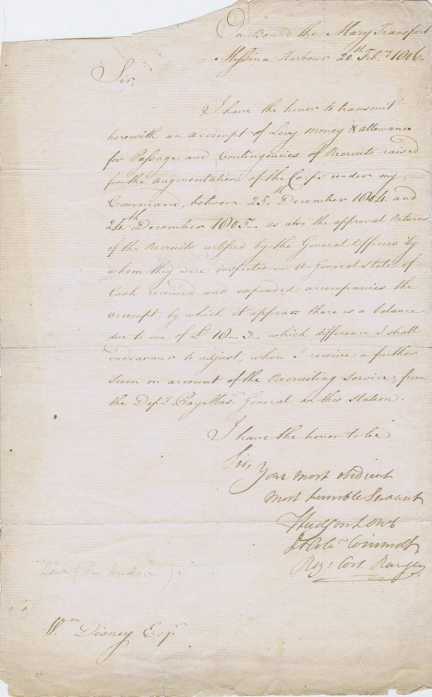 On Board the Mary Transport
Messina Harbour 20th Feby 1806
Sir,
I have the honor to transmit
herewith an accompt of Levy money & allowance
for Passage and Contingencies of Recruits raised
for the augmentation of the Corps under my
Command, between 25th December 1804 and
24th December 1805 as also the approval Returns
of the Recruits certified by the General Officers by
whom they were inspected. A General State of
Cash received and expended accompanies the
accompt, by which it appears there is a balance
due to me of £ 10 3 which difference I shall
endeavour to adjust, when I receive a further
Sum on account of the Recruiting Service, from
the Depy Paymasr General on this station.
I have the honor to be
Sir, Your most obedient
most humble Servant
Hudson Lowe
Lt Col Commdt
Regt Cors Rangers
Wm Disney Esqr